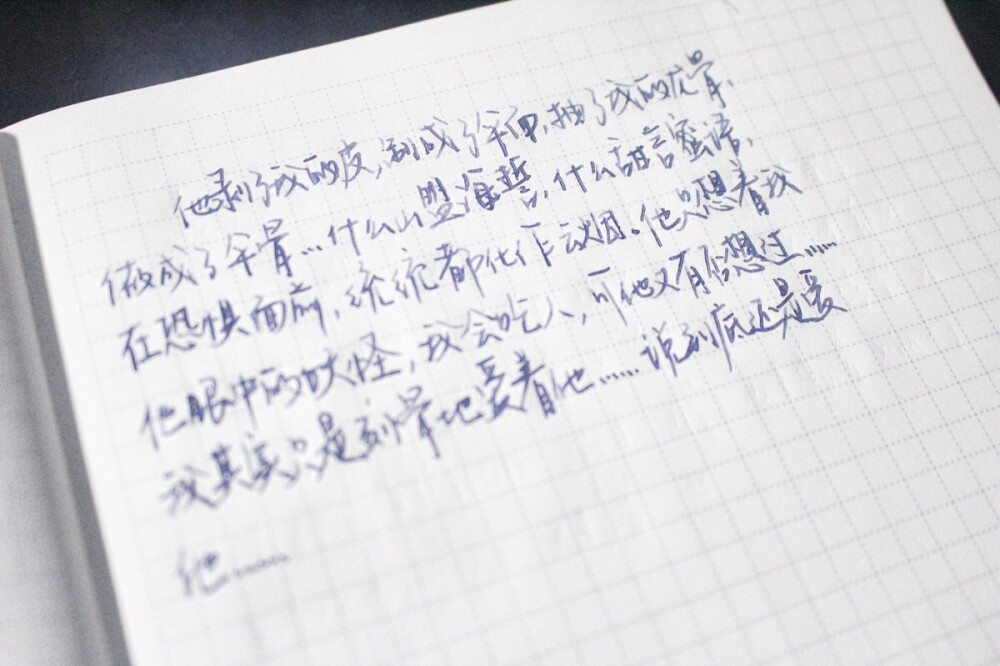 他剥了我的皮，制成了伞面，抽了我的尤骨，
做成了伞骨…什么山盟海誓，什么甜言蜜语，
在恐惧面前，统统都化作云烟。他只想着我
他眼中的妖怪，我会吃人，可他又有否想过……
我其实只是刻骨地爱着他……说到底还是爱
他……